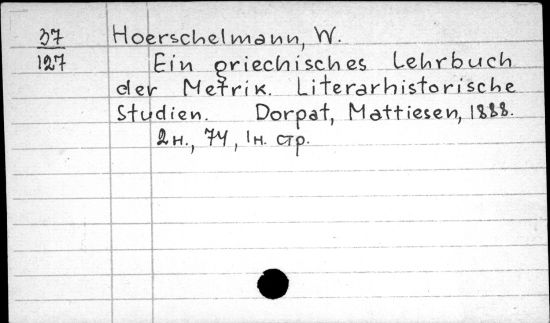 37 Hoerschelmann, W.
127 Ein griechisches Lehrbuch
der Metrik. Literarhistorische
Studien. Dorpat, Mattiesen, 1888.
2н., 74, 1н. стр.